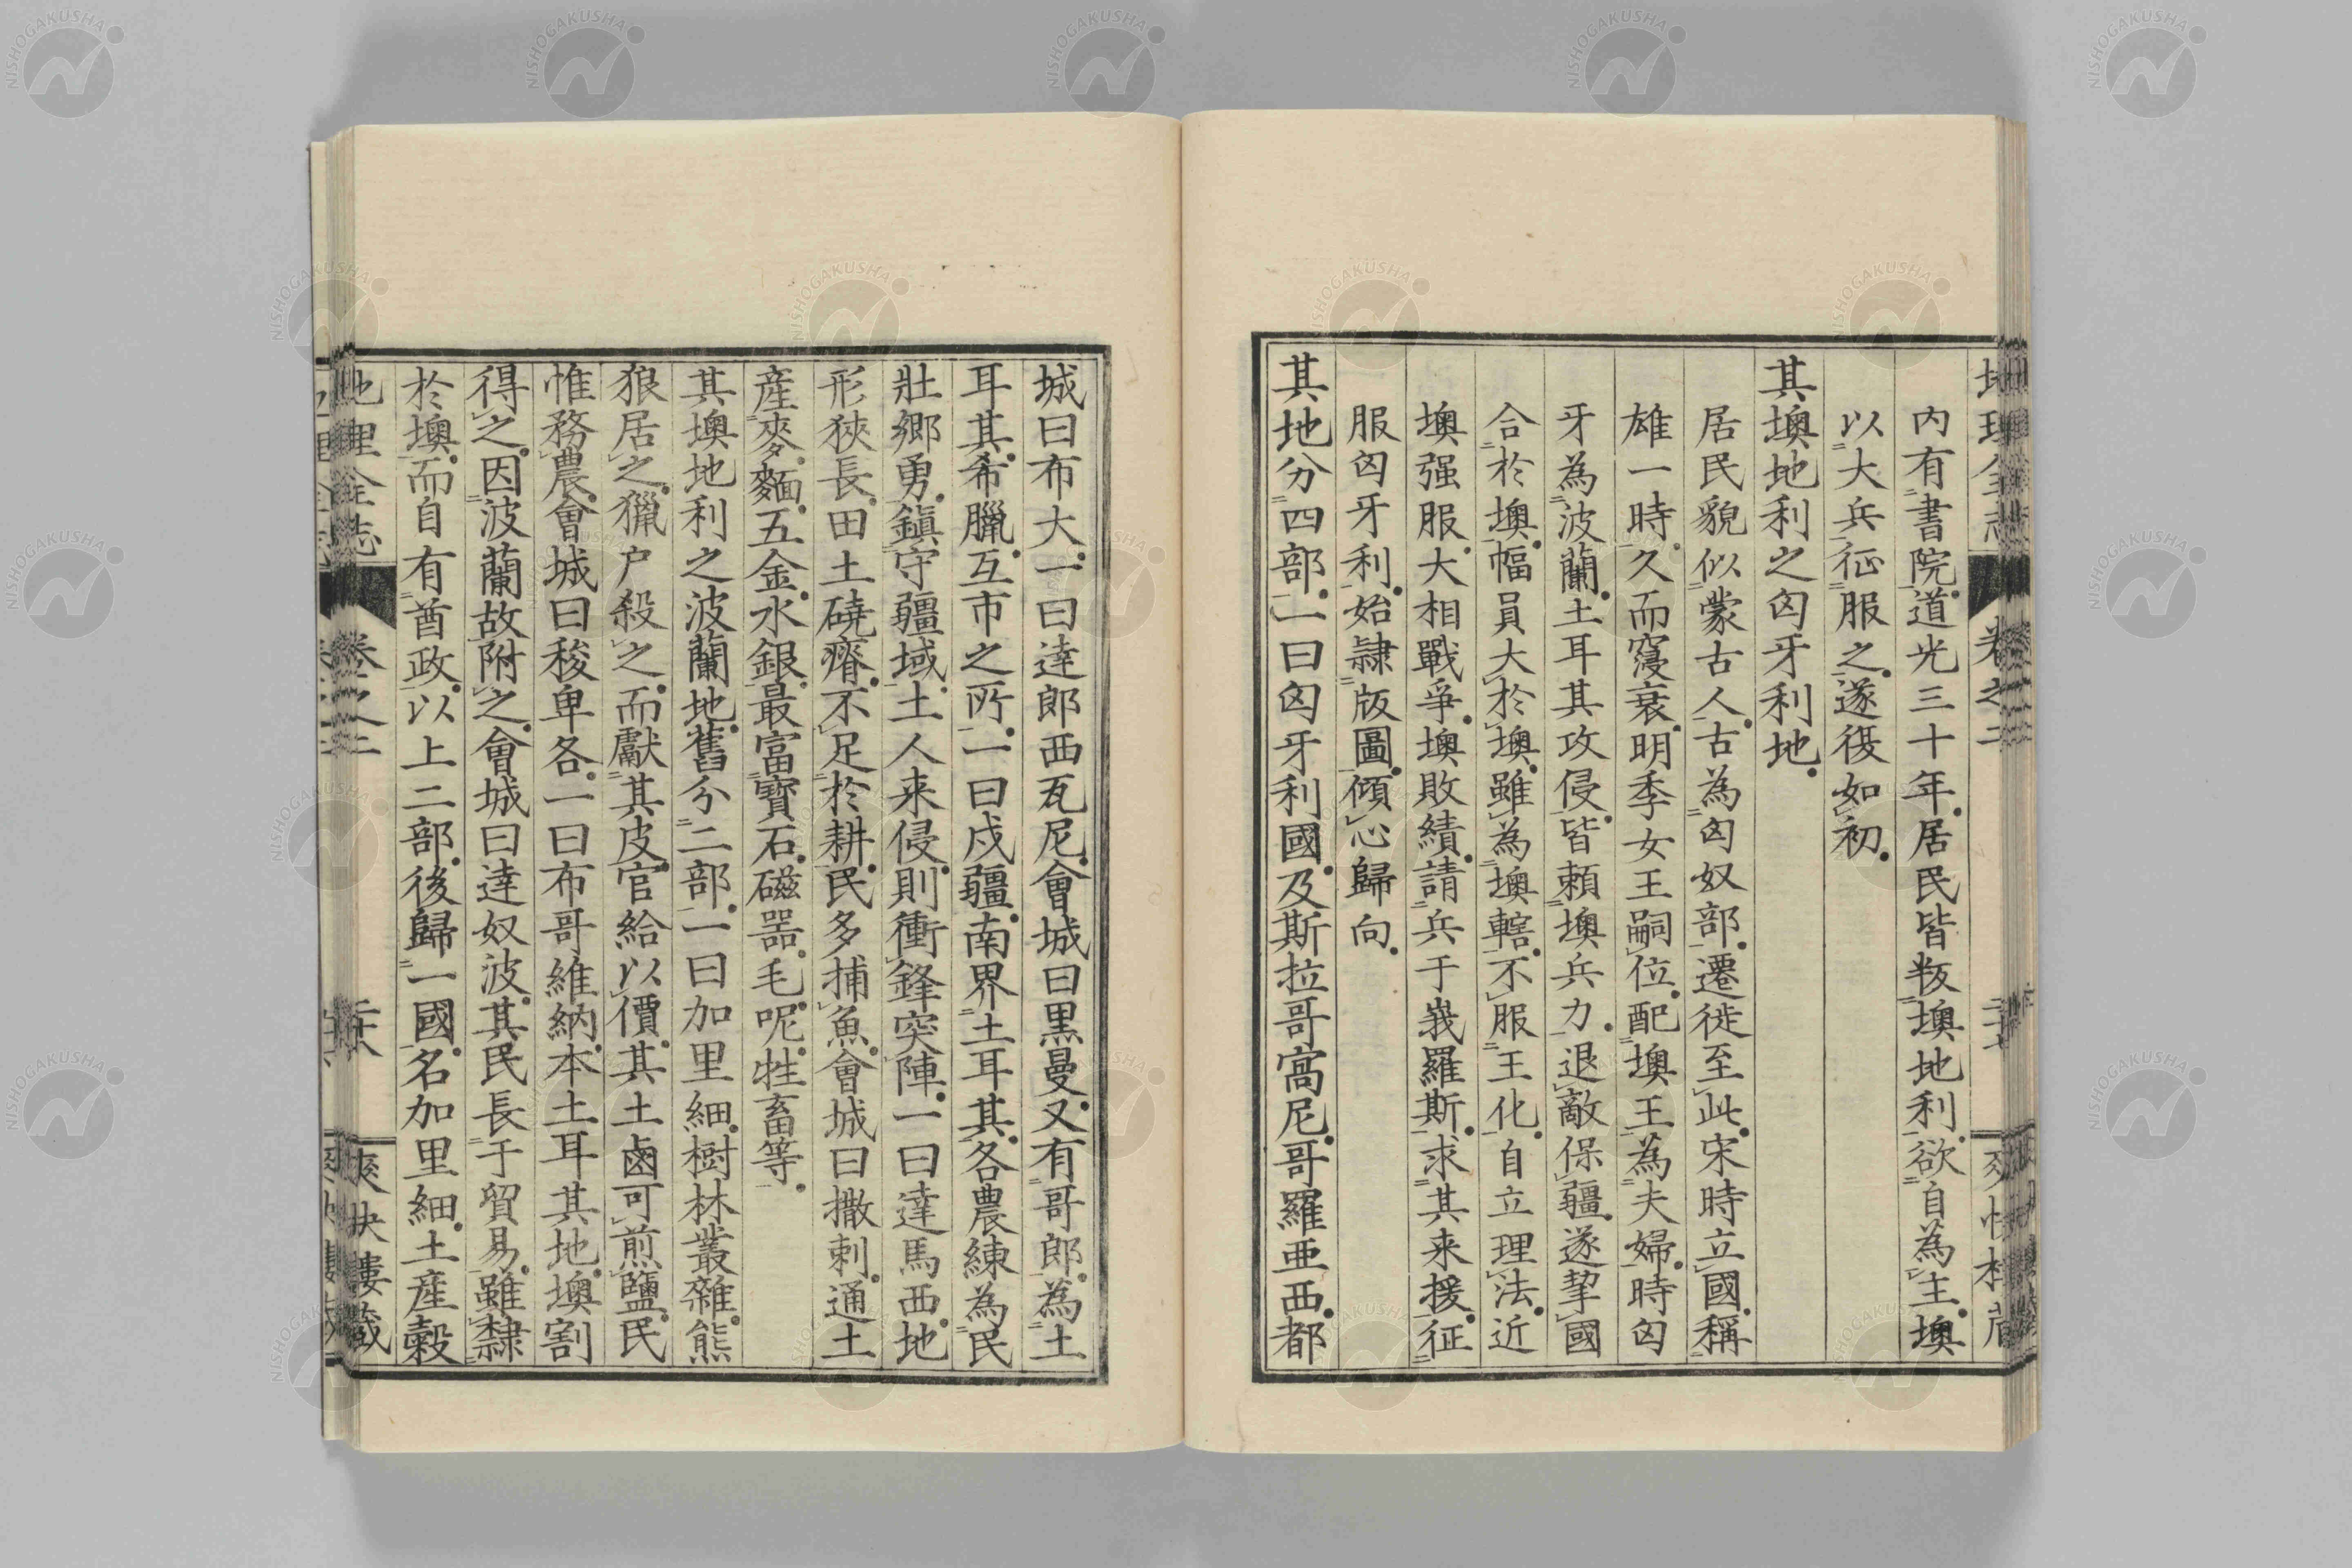 地理全志 卷之二 二十七 爽快樓藏
內有書院道光三十年居民皆叛墺地利欲自為主墺
以大兵征服之遂復如初
其墺地利之匈牙利地
居民貌似蒙古人古為匈奴部遷徙至此宋時立國稱
雄一時久而寖衰明季女王嗣位配墺王為夫婦時匈
牙為波蘭土耳其攻侵皆頼墺兵力退敵保疆遂挈國
合於墺幅員大於墺雖為墺轄不服王化自立理法近
墺强服大相戰爭墺敗績請兵于峩羅斯求其来援征
服匈牙利始隷版圖傾心歸向
其地分四部一曰匈牙利國及斯拉哥窩尼哥羅亜西都
城曰布大一曰達郎西瓦尼會城曰黒曼又有哥郎為土
耳其希臘互市之所一曰戍疆南界土耳其各農練為民
壯鄉勇鎮守疆域土人来侵則衝鋒突陣一曰達馬西地
形狹長田土磽瘠不足於耕民多捕魚會城曰撒剌通土
産麥麵五金水銀最富寶石磁噐毛呢牲畜等
其墺地利之波蘭地舊分二部一曰加里細樹林叢雜熊
狼居之獵户殺之而獻其皮官給以價其土鹵可煎鹽民
惟務農會城曰稄卑各一曰布哥維納本土耳其地墺割
得之因波蘭故附之會城曰達奴波其民長于貿易雖隸
於墺而自有酋政以上二部後歸一國名加里細土産穀
地理全志 卷之二 二十八 爽快樓藏